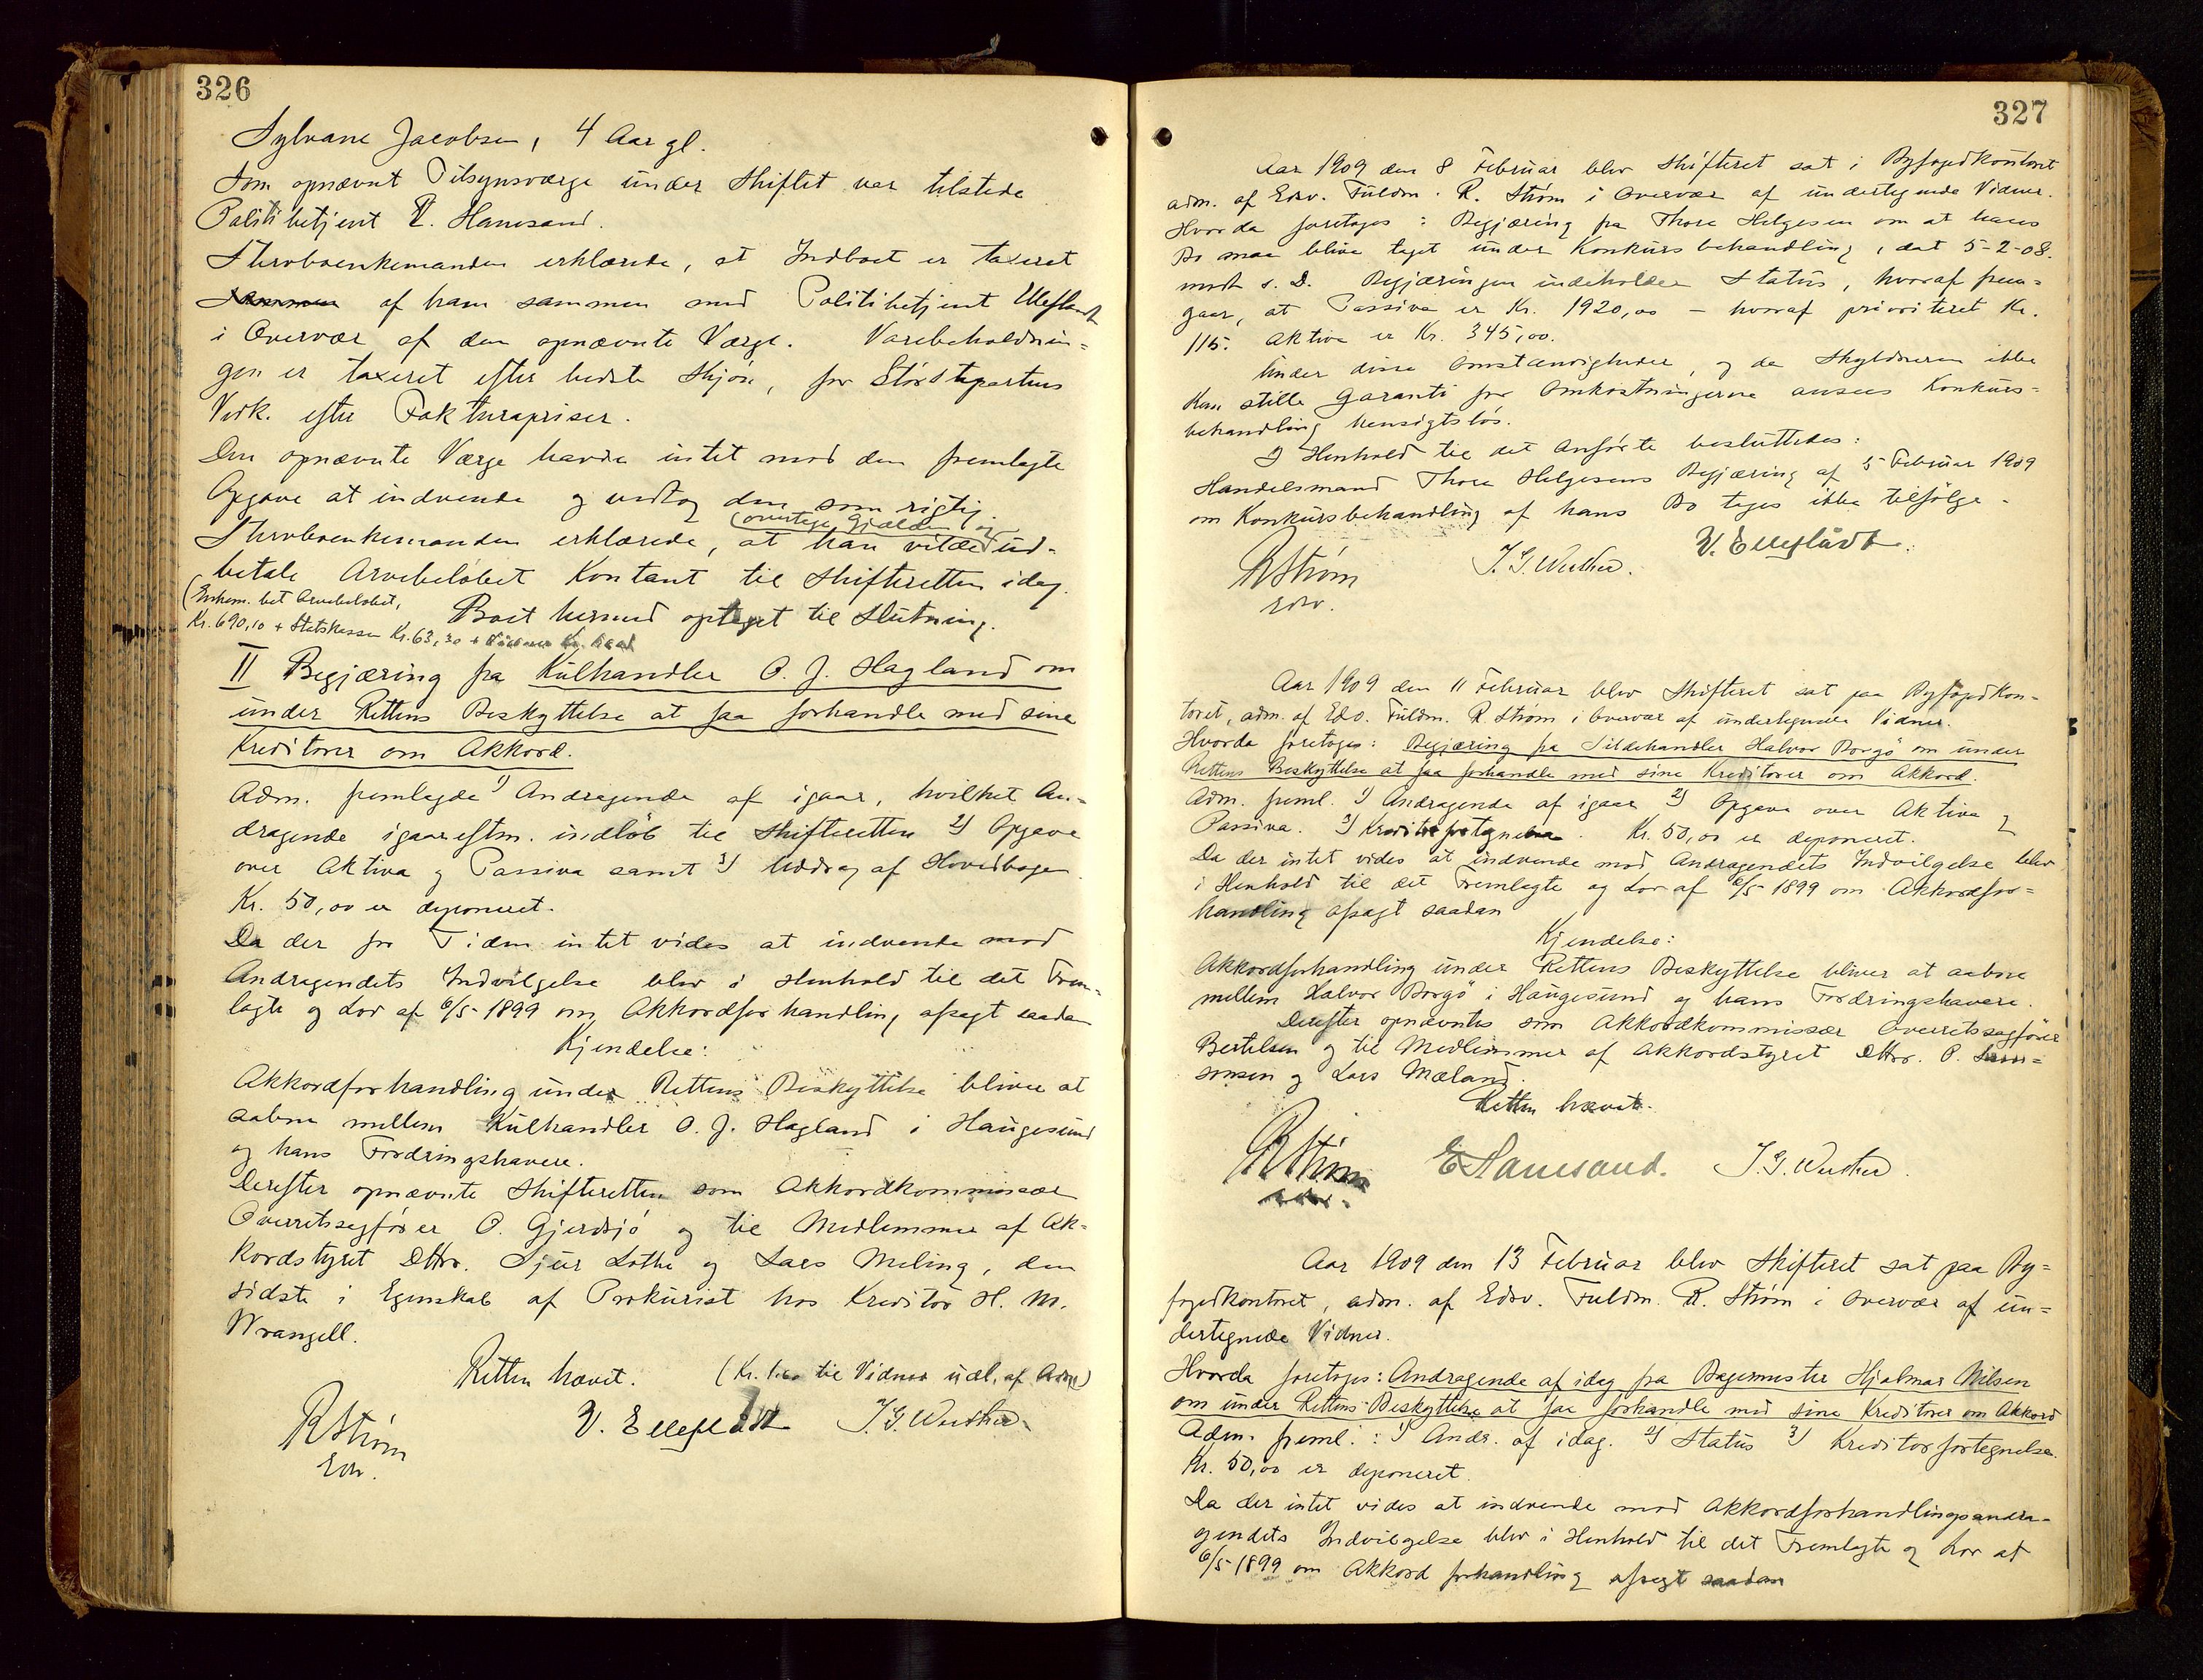 326
Sylvane Jacobsen, 4 Aar gl.
Som opnævnt Tilsynsværge under Skiftet var tilstede
Politibetjent E. Hanesand.
Sterboenkemanden erklærede, at Indboet er taxeret
af ham sammen med Politibetjent Elleflaadt
i Overvær af den opnævnte Værge. Varebeholdnin-
gen er taxeret efter bedste Skjøn, for Størstepartens
Vedk. efter Fakturapriser.
Den opnævnte Værge havde intet mod den fremlagte
Opgave at indvende og vedtog den som rigtig.
(overtage Gjælden og
Sterboenkemanden erklærede, at han vilde ud-
betale Arvebeløbet Kontant til Skifteretten idag.
(Enkem. bet Arvebeløbet,
Boet hermed optaget til Slutning.
Kr. 690,10 + Statskassen Kr. 63,30 +
II Begjæring fra Kulhandler O. J. Hagland om
under Rettens Beskyttelse at faa forhandle med sine
Kreditorer om Akkord.
Adm. fremlagde 1) Andragende af igaar, hvilket An-
dragende igaar eftm. indløb til Skifteretten 2) Opgave
over Aktiva og Passiva samt 3) Uddrag af Hovedbogen
Kr. 50,00 er deponeret.
Da der for Tiden intet vides at indvende mod
Andragendets Indvilgelse blev i Henhold til det Frem-
lagte og Lov af 6/5-1899 om Akkordforhandling afsagt saadan
Kjendelse:
Akkordforhandling under Rettens Beskyttelse bliver at
aabne mellem Kulhandler O. J. Hagland i Haugesund
og hans Fordringshavere.
Derefter opnævnte Skifteretten som Akkordkommissær
Overretssagfører O. Gjerdsjø og til Medlemmer af Ak-
kordstyret DHrr. Sjur Lothe og Lars Meling, den
sidste i Egenskab af Prokurist hos Kreditor H. M.
Wrangell.
Retten hævet. (Kr. 1.60 til Vidner udl. af Adm.)
RStrøm V. Elleflaadt J. G. Wüsther
Edv.
327
Aar 1909 den 8 Februar blev Skifteret sat i Byfogedkontoret
adm. af Edsv. Fuldm. R. Strøm i Overvær af undertegnede Vidner.
Hvorda foretoges: Begjæring fra Thore Helgesen om at hans
Bo maa blive taget under Konkursbehandling, dat 5-2-08.
modt s. D. Begjæringen indeholder Status, hvoraf frem-
gaar, at Passiva er Kr. 1920,00 - hvoraf prioriteret Kr.
115. Aktiva er Kr. 345,00.
Under disse Omstændigheder, og da Skyldneren ikke
kan stille Garanti for Omkostningerne ansees Konkurs-
behandling hensigtsløs.
I Henhold til det Anførte besluttedes:
Handelsmand Thore Helgesens Begjæring af 5 Februar 1909
om Konkursbehandling af hans Bo tages ikke tilfølge.
RStrøm J. G. Wüsther. V. Elleflaadt.
Edsv.
Aar 1909 den 11 Februar blev Skifteret sat paa Byfogedkon-
toret, adm. af Edsv. Fuldm. R. Strøm i Overvær af undertegnede Vidner.
Hvorda foretoges: Begjæring fra Sildehandler Halvor Borgø om under
Rettens Beskyttelse at faa forhandle med sine Kreditorer om Akkord.
Adm. freml. 1) Andragende af igaar 2) Opgave over Aktiva og
Passiva. 3) Kreditorfortegnelse. Kr. 50,00 er deponeret.
Da der intet vides at indvende mod Andragendets Indvilgelse blev
i Henhold til det Fremlagte og Lov af 6/5-1899 om Akkordfor-
handling afsagt saadan
Kjendelse:
Akkordforhandling under Rettens Beskyttelse bliver at aabne
mellem Halvor Borgø i Haugesund og hans Fordringshavere.
Derefter opnævntes som Akkordkommissær Overretssagfører
Bertelsen og til Medlemmer af Akkordstyret DHrr. P. Sam-
sonsen og Lars Mæland.
Retten hævet.
RStrøm E Hanesand. J. G. Wüsther.
Aar 1909 den 13 Februar blev Skifteret sat paa By-
fogedkontoret, adm. af Edsv. Fuldm. R. Strøm i Overvær af un-
dertegnede Vidner.
Hvorda foretoges: Andragende af idag fra Bagermester Hjalmar Nilsen
om under Rettens Beskyttelse at faa forhandle med sine Kreditorer om Akkord
Adm. freml.: 1) Andr. af idag. 2) Status 3) Kreditorfortegnelse.
Kr. 50,00 er deponeret.
Da der intet vides at indvende mod Akkordforhandlingsandra-
gendets Indvilgelse blev i Henhold til det Fremlagte og Lov af
6/5-1899 om Akkordforhandling afsagt saadan